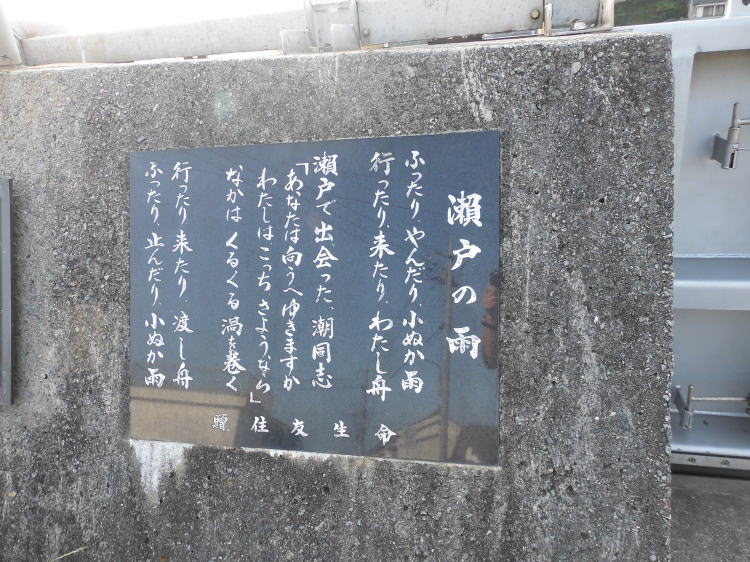 瀬戸の雨
ふったり、やんだり、小ぬか雨
行ったり、来たり、わたし舟
瀬戸で出会った、潮同志
「あなたは向うへゆきますか
わたしはこっち、さようなら」
なかは くるくる 渦を巻く
行ったり、来たり、渡し舟
ふったり、止んだり、小ぬか雨
贈 住友生命